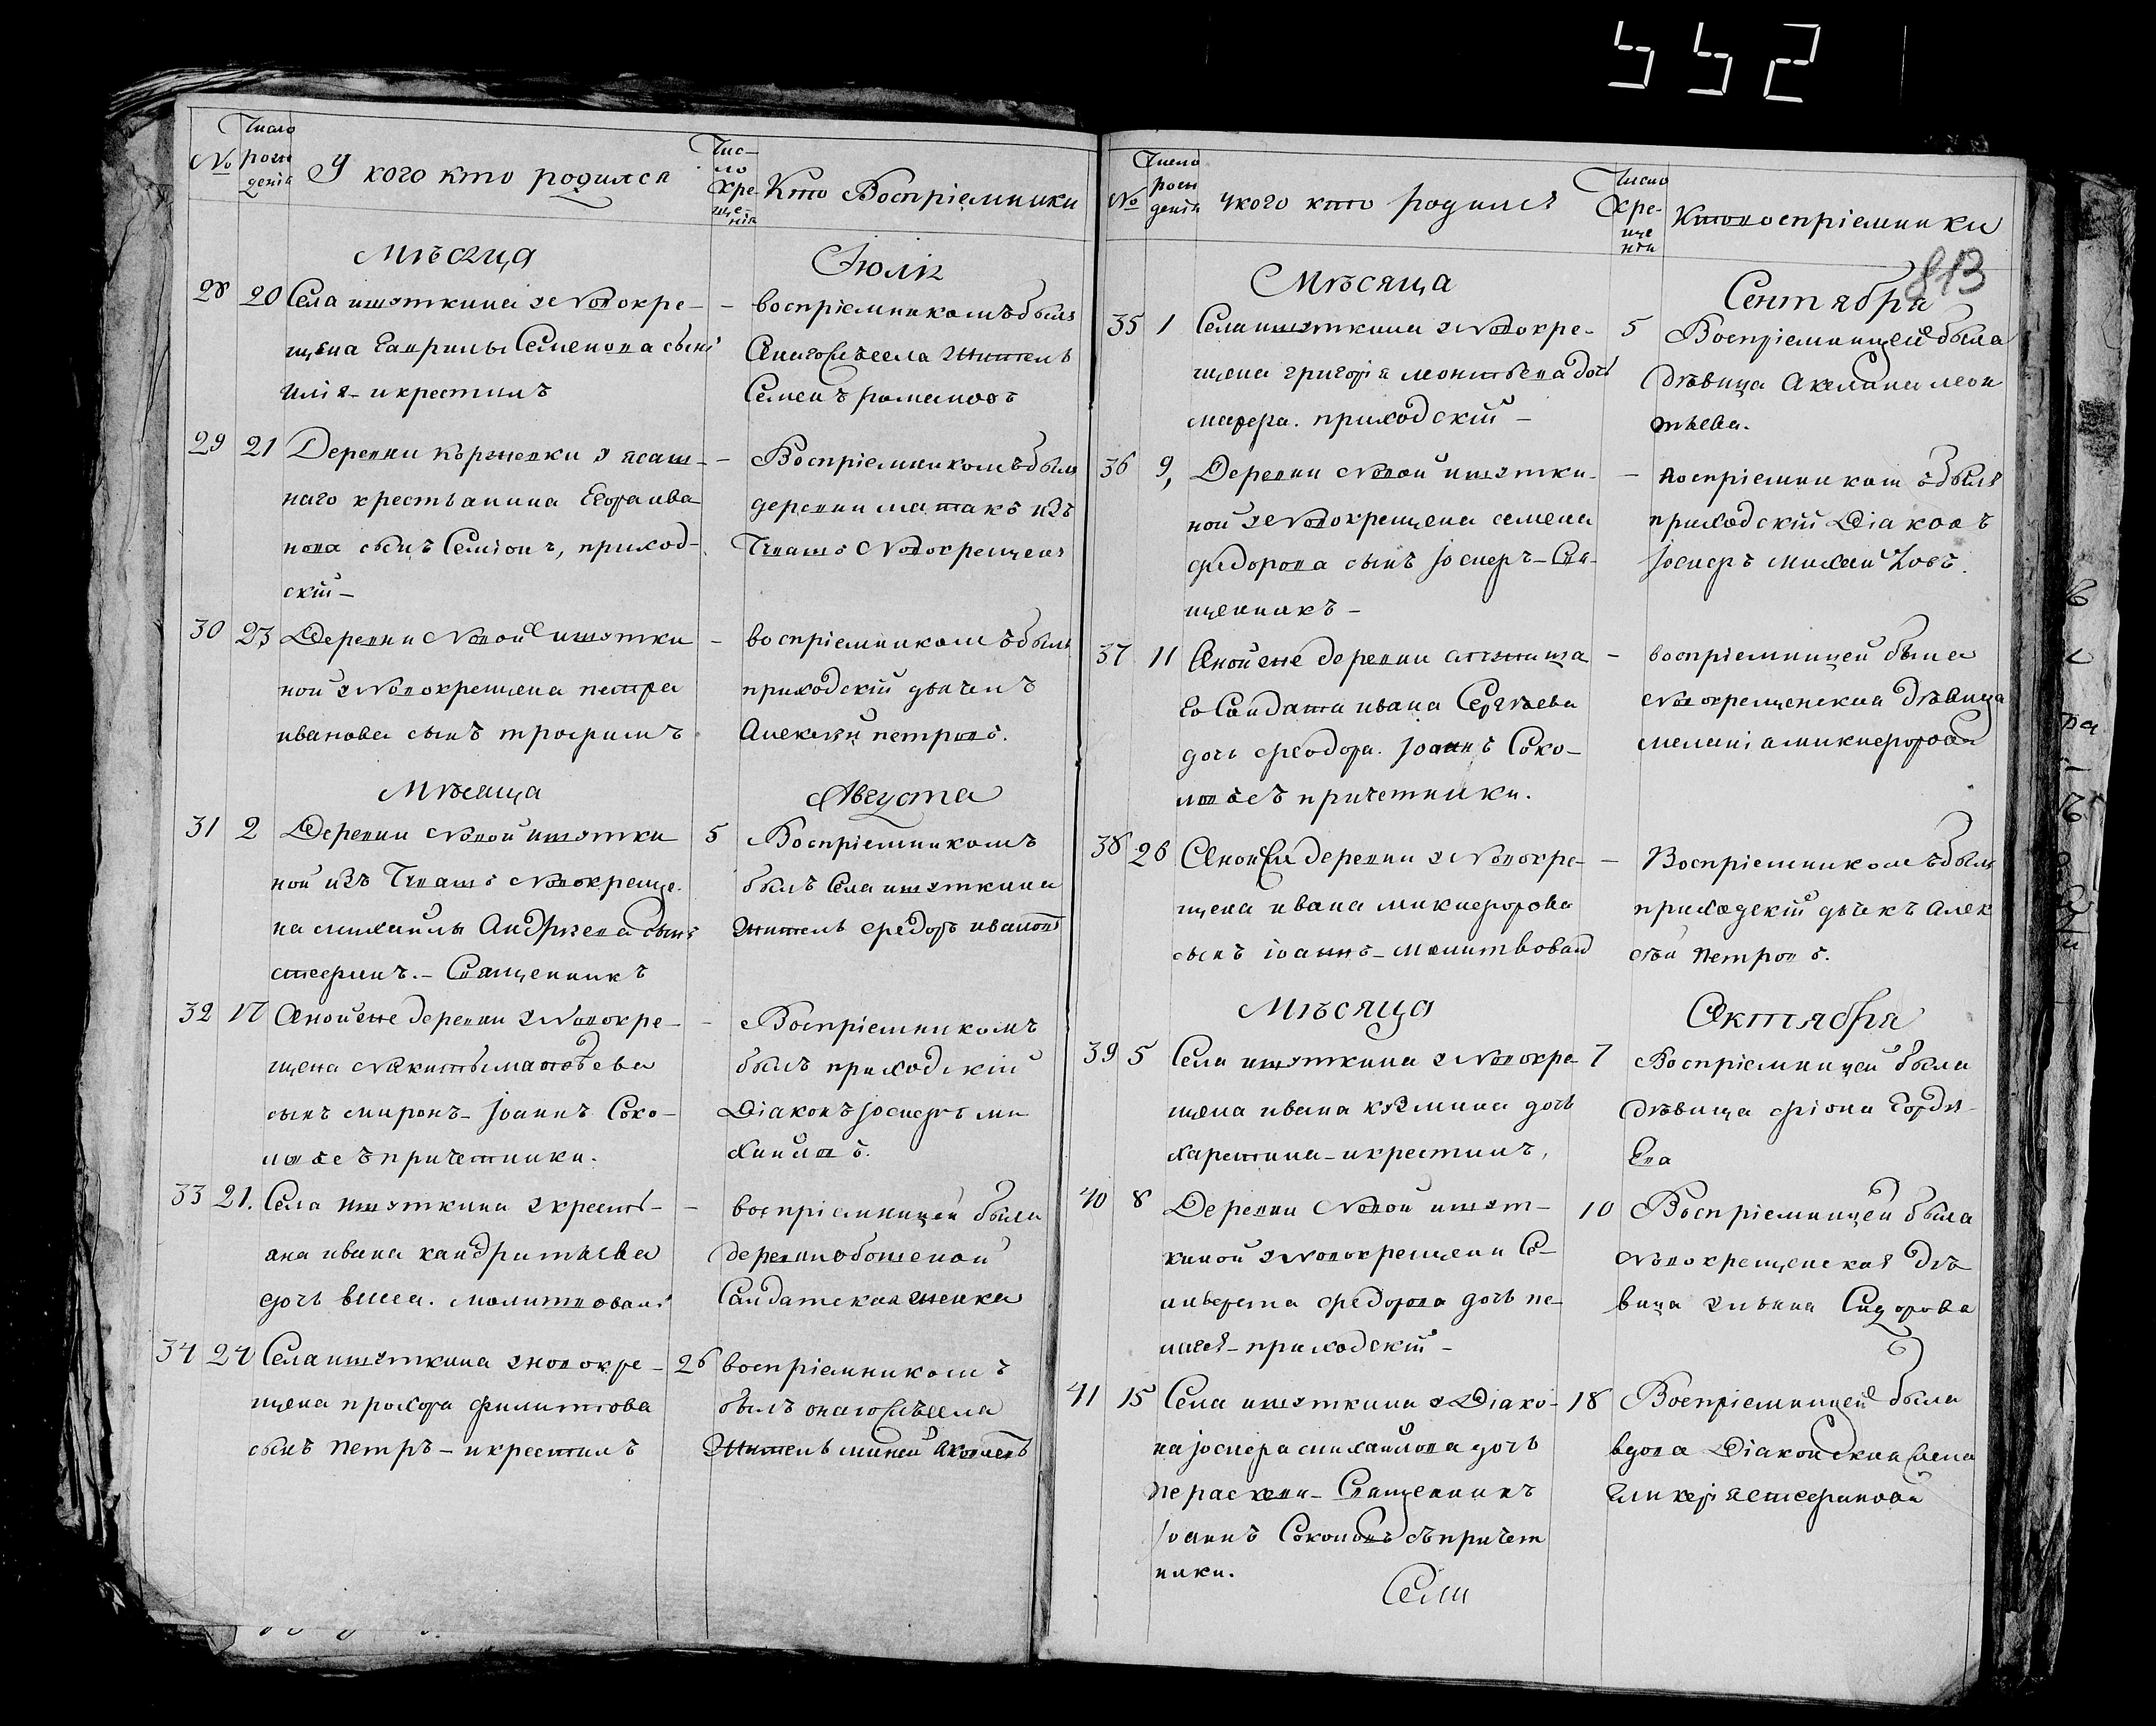 552
813
№
Число рож дения
У кого кто родился
Чис-
ло
кре-
ще-
ния
Кто Воспріемники
Мѣсяца
Іюля
28 20 Села ишуткина у Новокре- -
щена Гаврилы Семенова сынъ
Илія - и крестилъ
воспріемникомъ былъ
Онаго Села житель
Семенъ романовъ
29 21 Деревни коржевки у ясаш- -
наго крестьянина Егора ива
нова сынъ Семіонъ, приход-
скій -
Воспріемникомъ былъ
деревни матакъ изъ
Чувашъ Новокрещенъ
30 23 Деревни Новой ишутки -
ной у Новокрещена петра
иванова сынъ трофимъ
воспріемникомъ былъ
приходскій дьячекъ
Алексѣй петровъ.
Мѣсяца
Августа
31 2 Деревни Новой ишутки 5
ной изъ Чувашъ Новокреще
на михайлы Андреева сынъ
стефанъ. - Священникъ
Воспріемникомъ
былъ Села ишуткина
житель федоръ ивановъ
32 17 Оной же деревни у Новокре- -
щена Никиты матвѣева
сынъ миронъ - Іоаннъ Соко-
ловъ съ причетники.
Воспріемникомъ
былъ приходскій
Діаконъ Іосифъ ми
хайловъ.
33 21. Села ишуткина у кресть- -
яна ивана кандратьева
дочь васса. молитвовалъ
воспріемницей была
деревни
Салдатская женка
34 24 Села ишуткина у новокре- 26
щена прохора филиппова
сынъ петръ - и крестилъ
воспріемникомъ
былъ онаго Села
житель миней яковлевъ
№
Число рож денія
У кого кто родился
Число
кре-
ще
нія
Кто воспріемники
Мѣсяца
Сентября
35 1 Села ишуткина у Новокре- 5
щена григорія леонтьева дочь
. приходскій -
Воспріемницей была
дѣвица Акелина леон
тьева.
36 9, Деревни Новой ишутки- -
ной у Новокрещена семена
федорова сынъ Іосифъ - Свя-
щенникъ -
воспріемникомъ былъ
приходскій Діаконъ
Іосифъ михайловъ.
37 11 Оной же деревни -
Салдата ивана Сергѣева
дочь феодора. Іоаннъ Соко-
ловъ съ причетники.
воспріемницей была
Новокрещенская дѣвица
меланіа микифорова
38 26 Оной деревни у Новокре- -
щена ивана микифорова
сынъ іоаннъ - молитвовалъ
Воспріемникомъ былъ
приходскій дьячекъ Алек
сѣй петровъ.
Мѣсяца
Октября
39 5 Села ишуткина у Новокре- 7
щена ивана кузмина дочь
харетина - и крестилъ,
Воспріемницей была
дѣвица Горде-
Ева
40 8 Деревни Новой ишут- 10
киной у Новокрещена Се-
ливерста федорова дочь пе-
лагея - приходскій -
Воспріемницей была
Новокрещенская дѣ
вица ульяна Сидорова
41 15 Села ишуткина у Діако- 18
на Іосифа михайлова дочь
параскева - Священникъ
Іоаннъ Соколовъ съ причет
ники.
Воспріемницей была
вдова Діаконская жена
Гликерія стефанова
Села